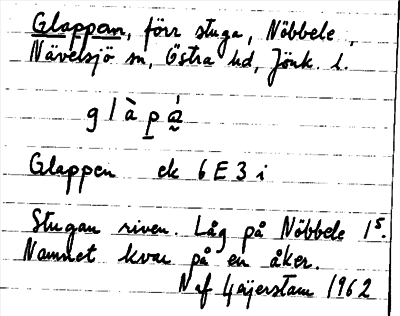 Glappen, förr stuga, Nöbbele,
Nävelsjö sn, Östra hd, Jönk. l.
g l à p á̰
Glappen ek 6 E 3 i
Stugan riven. Låg på Nöbbele 1⁵.
Namnet kvar på en åker.
N af Geijerstam 1962